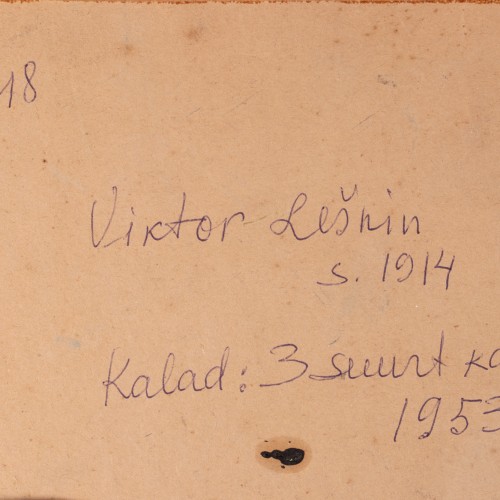 18
Viktor Lešnin
s. 1914
Kalad: 3 suurt ka
1953